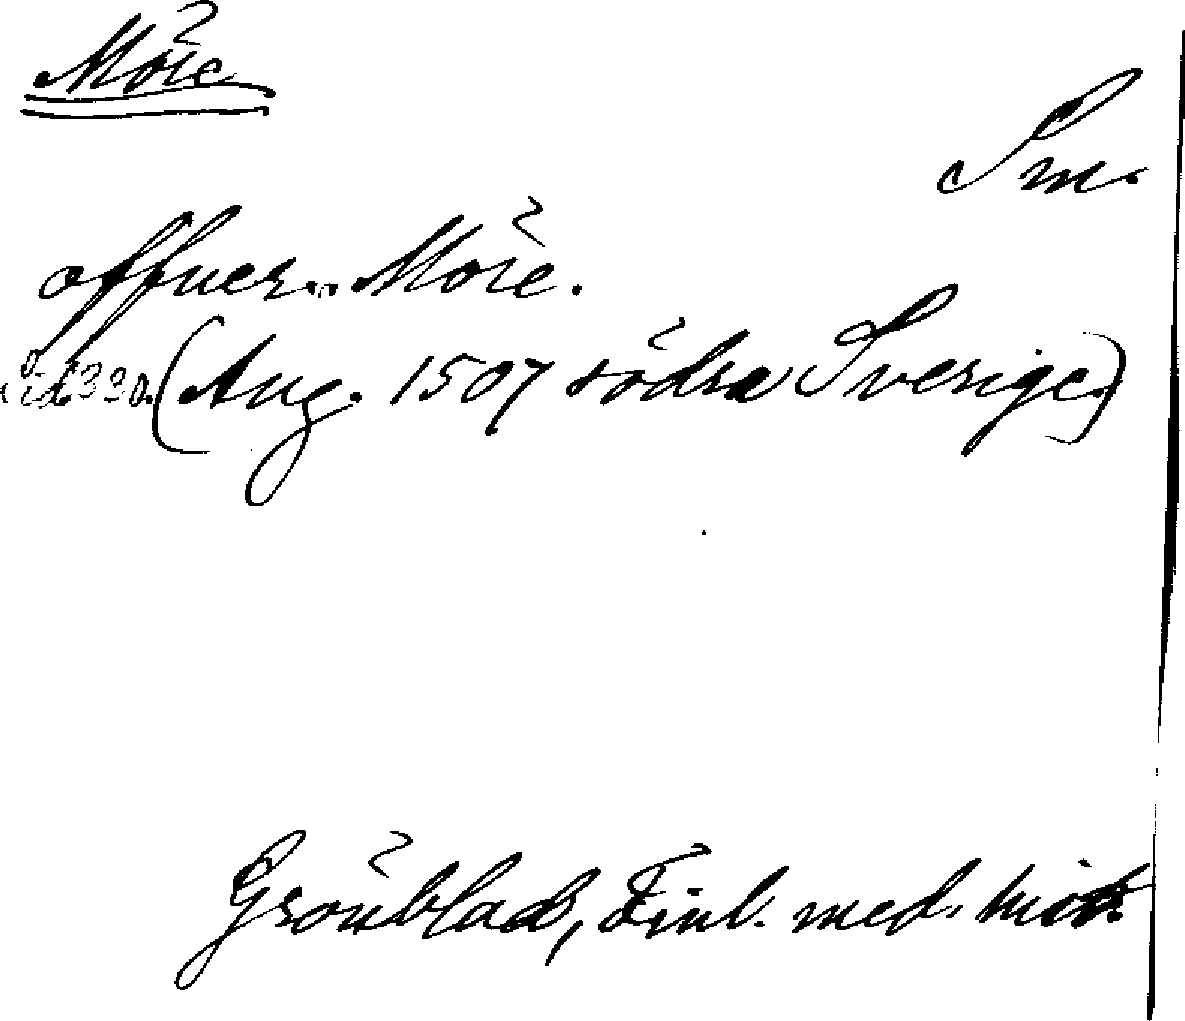 Möre
Sm.
offuer .. Möre.
sid 330. (Aug. 1507 södra Sverige.)
Grönblad, Finl. med. hist.